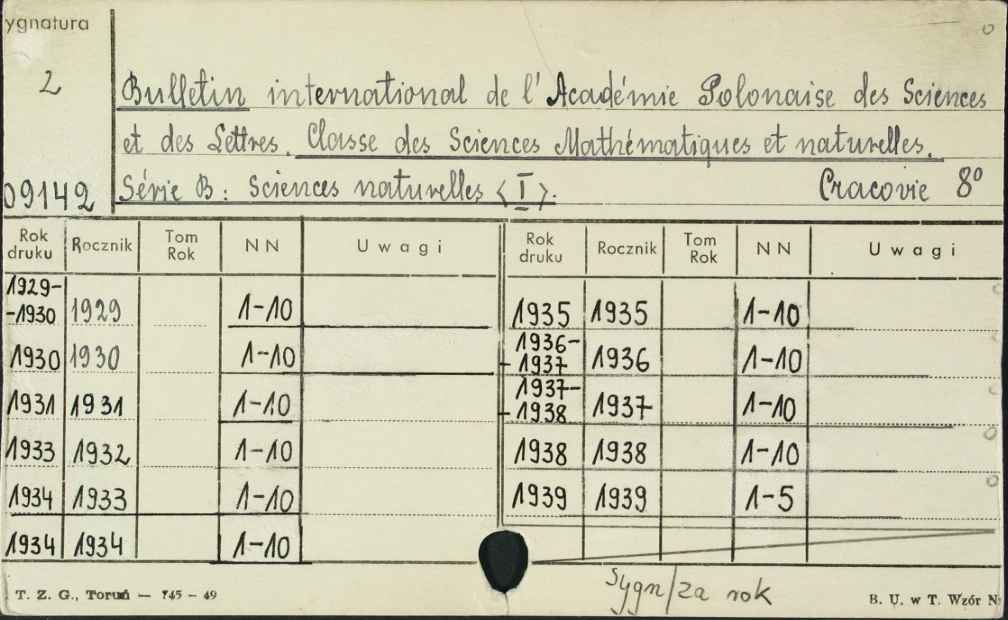 ygnatura
2
Bulletin international de l'Académie Polonaise des Sciences
et des Lettres. Classe des Sciences Mathématiques et naturelles.
09142 Série B: Sciences naturelles <I>. Cracovie 8º
Rok druku Rocznik Tom Rok NN Uwagi Rok druku Rocznik Tom Rok NN Uwagi
1929-
-1930 1929 1-10 1935 1935 1-10
1930 1930 1-10 1936-
-1937 1936 1-10
1931 1931 1-10 1937-
-1938 1937 1-10
1933 1932 1-10 1938 1938 1-10
1934 1933 1-10 1939 1939 1-5
1934 1934 1-10
Sygn/za rok
T. Z. G., Toruń — 745 - 49 B. U. w T. Wzór N